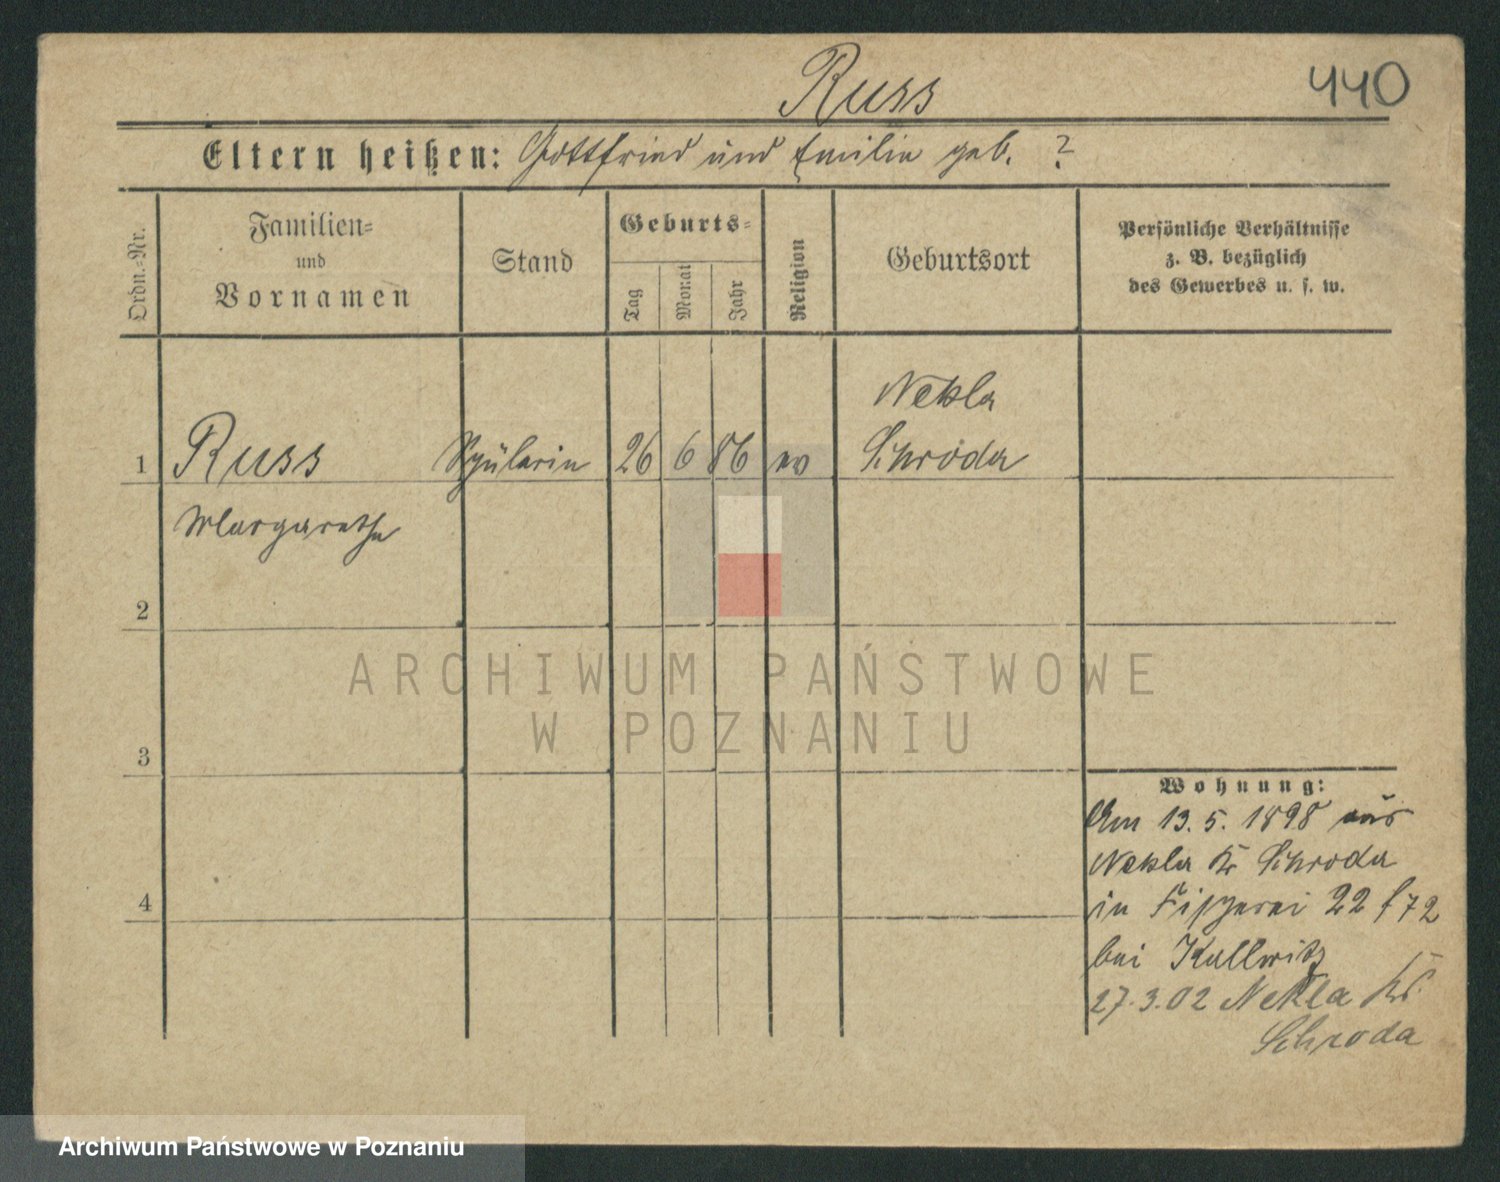 Russ
440
Eltern heißen: Gottfried und Emilie geb. ?
Ordn.-Nr.
Familien-
und
Vornamen
Stand
Geburts-
Tag
Monat
Jahr
Religion
Geburtsort
Persönliche Verhältnisse
z. B. bezüglich
des Gewerbes u. s. w.
1
Russ
Margarethe
Schülerin
26
6
86
ev
Nekla
Schroda
2
3
4
ARCHIWUM PAŃSTWOWE
W POZNANIU
Wohnung:
Am 13. 5. 1898 aus
Nekla Kr Schroda
in Fischerei 22 f 72
bei Kullwitz
27.3.02 Nekla Kr.
Schroda
Archiwum Państwowe w Poznaniu